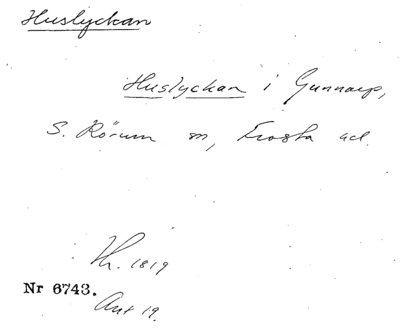 Huslyckan
Huslyckan i Gunnarp,
S. Rörum sn, Frosta hd.
Th. 1819
Nr 6743.
Ant 19.